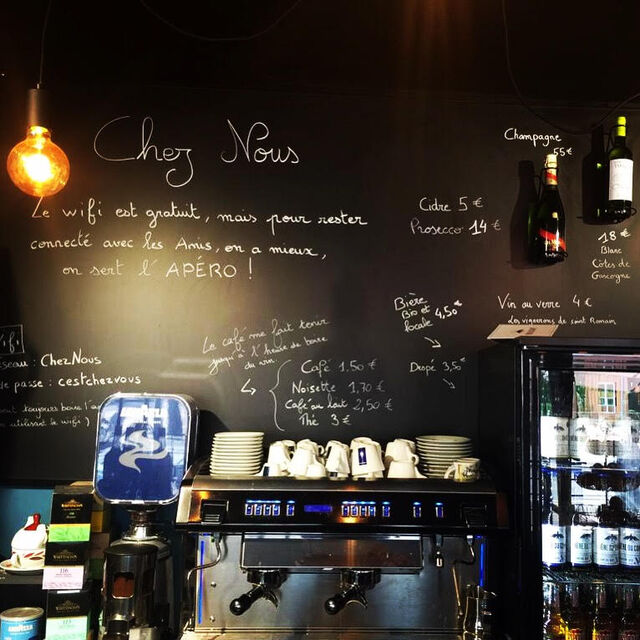 Chez Nous
Le wifi est gratuit, mais pour rester
connecté avec les Amis, on a mieux,
on sert l'APÉRO !
Champagne
55€
Cidre 5 €
Prosecco 14 €
18 €
Blanc
Côtes de
Gascogne
Vin au verre 4 €
Les vignerons de saint Romain
Bière
Bio et
locale 4,50€
3,50€
Le café me fait tenir
jusqu'à l'heure de boire
du vin
Café 1,50 €
Noisette 1,70 €
Café au lait 2,50 €
Thé 3 €
seau : ChezNous
de passe : cestchezvous
toujours boire l'a
utilisé le wifi )